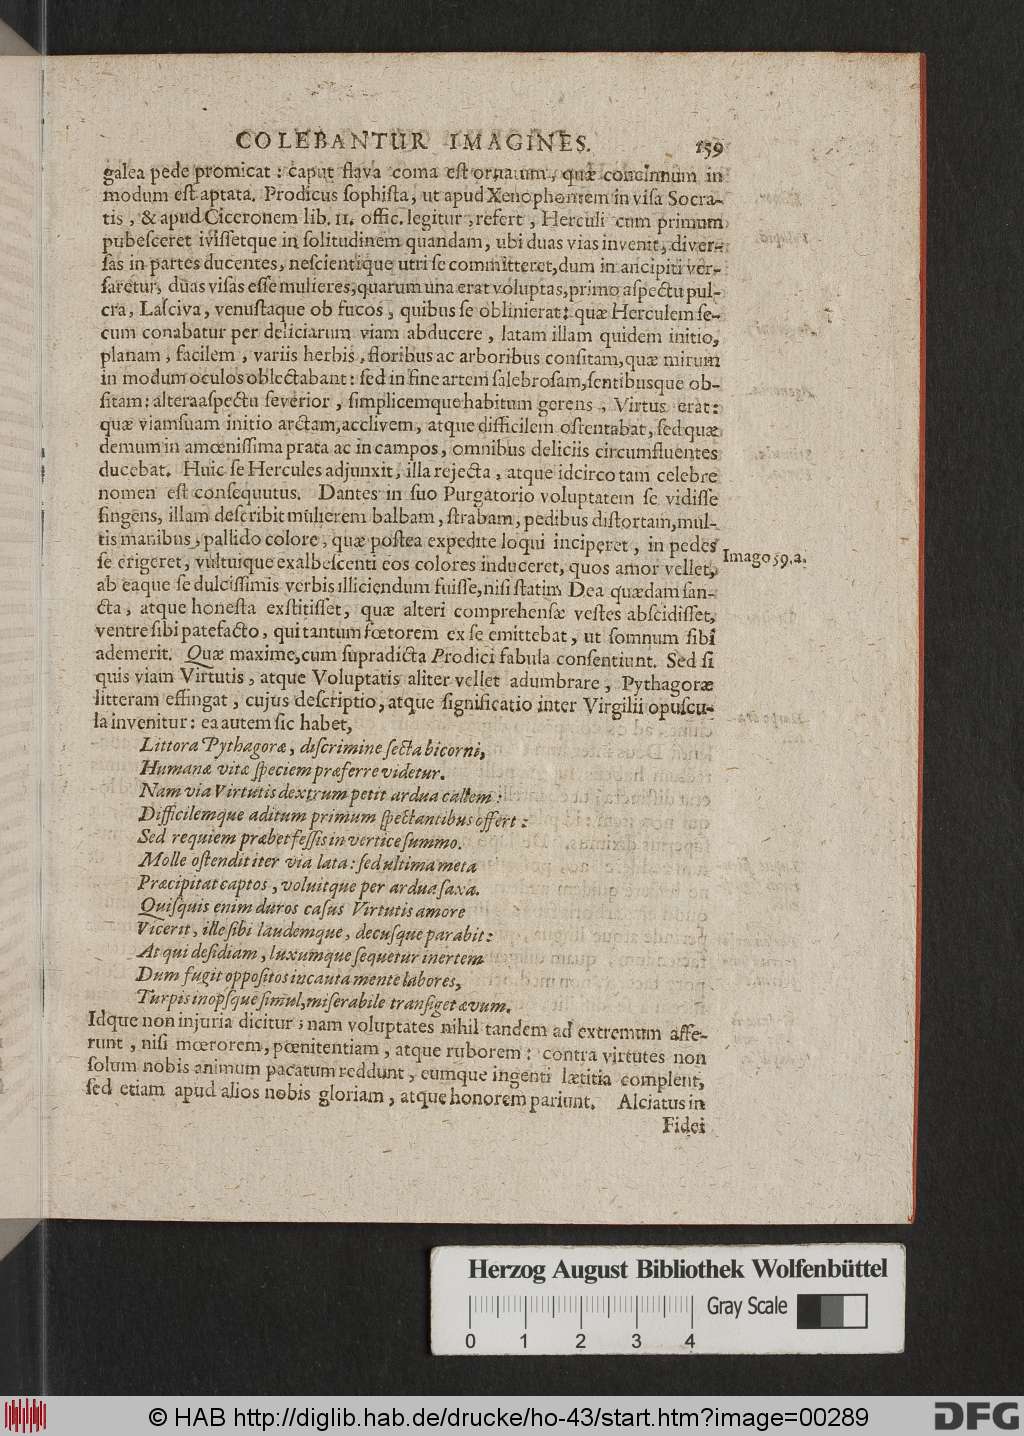 COLEBANTUR IMAGINES. 159
galea pede promicat : caput flava coma est ornatum, quæ concinnum in
modum est aptata. Prodicus sophista, ut apud Xenophontem in visa Socra-
tis, & apud Ciceronem lib. II. offic. legitur, refert, Herculi cum primum
pubesceret ivissetque in solitudinem quandam, ubi duas vias invenit, diver-
sas in partes ducentes, nescientique utri se committeret, dum in ancipiti ver-
saretur, duas visas esse mulieres, quarum una erat voluptas, primo aspectu pul-
cra, Lasciva, venustaque ob fucos, quibus se oblinierat: quæ Herculem se-
cum conabatur per deliciarum viam abducere, latam illam quidem initio,
planam, facilem, variis herbis, floribus ac arboribus consitam, quæ mirum
in modum oculos oblectabant: sed in fine artem salebrosam, sentibusque ob-
sitam: altera aspectu severior, simplicemque habitum gerens, Virtus erat:
quæ viam suam initio arctam, acclivem, atque difficilem ostentabat, sed quæ
demum in amœnissima prata ac in campos, omnibus deliciis circumfluentes
ducebat. Huic se Hercules adjunxit, illa rejecta, atque idcirco tam celebre
nomen est consequutus. Dantes in suo Purgatorio voluptatem se vidisse
fingens, illam describit mulierem balbam, strabam, pedibus distortam, mul-
tis manibus, pallido colore, quæ postea expedite loqui inciperet, in pedes
se erigeret, vultuique exalbescenti eos colores induceret, quos amor vellet,
Imago 59. a.
ab eaque se dulcissimis verbis illiciendum fuisse, nisi statim Dea quædam san-
cta, atque honesta exstitisset, quæ alteri comprehensæ vestes abscidisset,
ventre sibi patefacto, qui tantum fœtorem ex se emittebat, ut somnum sibi
ademerit. Quæ maxime, cum supradicta Prodici fabula consentiunt. Sed si
quis viam Virtutis, atque Voluptatis aliter vellet adumbrare, Pythagoræ
litteram effingat, cujus descriptio, atque significatio inter Virgilii opuscu-
la invenitur: ea autem sic habet,
Littora Pythagoræ, discrimine secta bicorni,
Humanæ vitæ speciem præferre videtur.
Nam via Virtutis dextrum petit ardua callem:
Difficilemque aditum primum spectantibus offert:
Sed requiem præbet fessis in vertice summo.
Molle ostendit iter via lata: sed ultima meta
Præcipitat captos, voluitque per ardua saxa.
Quisquis enim duros casus Virtutis amore
Vicerit, ille sibi laudemque, decusque parabit:
At qui desidiam, luxumque sequetur inertem
Dum fugit oppositos incauta mente labores,
Turpis inopsque simul, miserabile transiget ævum.
Idque non injuria dicitur; nam voluptates nihil tandem ad extremum affe-
runt, nisi mœrorem, pœnitentiam, atque ruborem: contra virtutes non
solum nobis animum pacatum reddunt, eumque ingenti lætitia complent,
sed etiam apud alios nobis gloriam, atque honorem pariunt. Alciatus in
Fidei
Herzog August Bibliothek Wolfenbüttel
Gray Scale
0 1 2 3 4
© HAB http://diglib.hab.de/drucke/ho-43/start.htm?image=00289
DFG